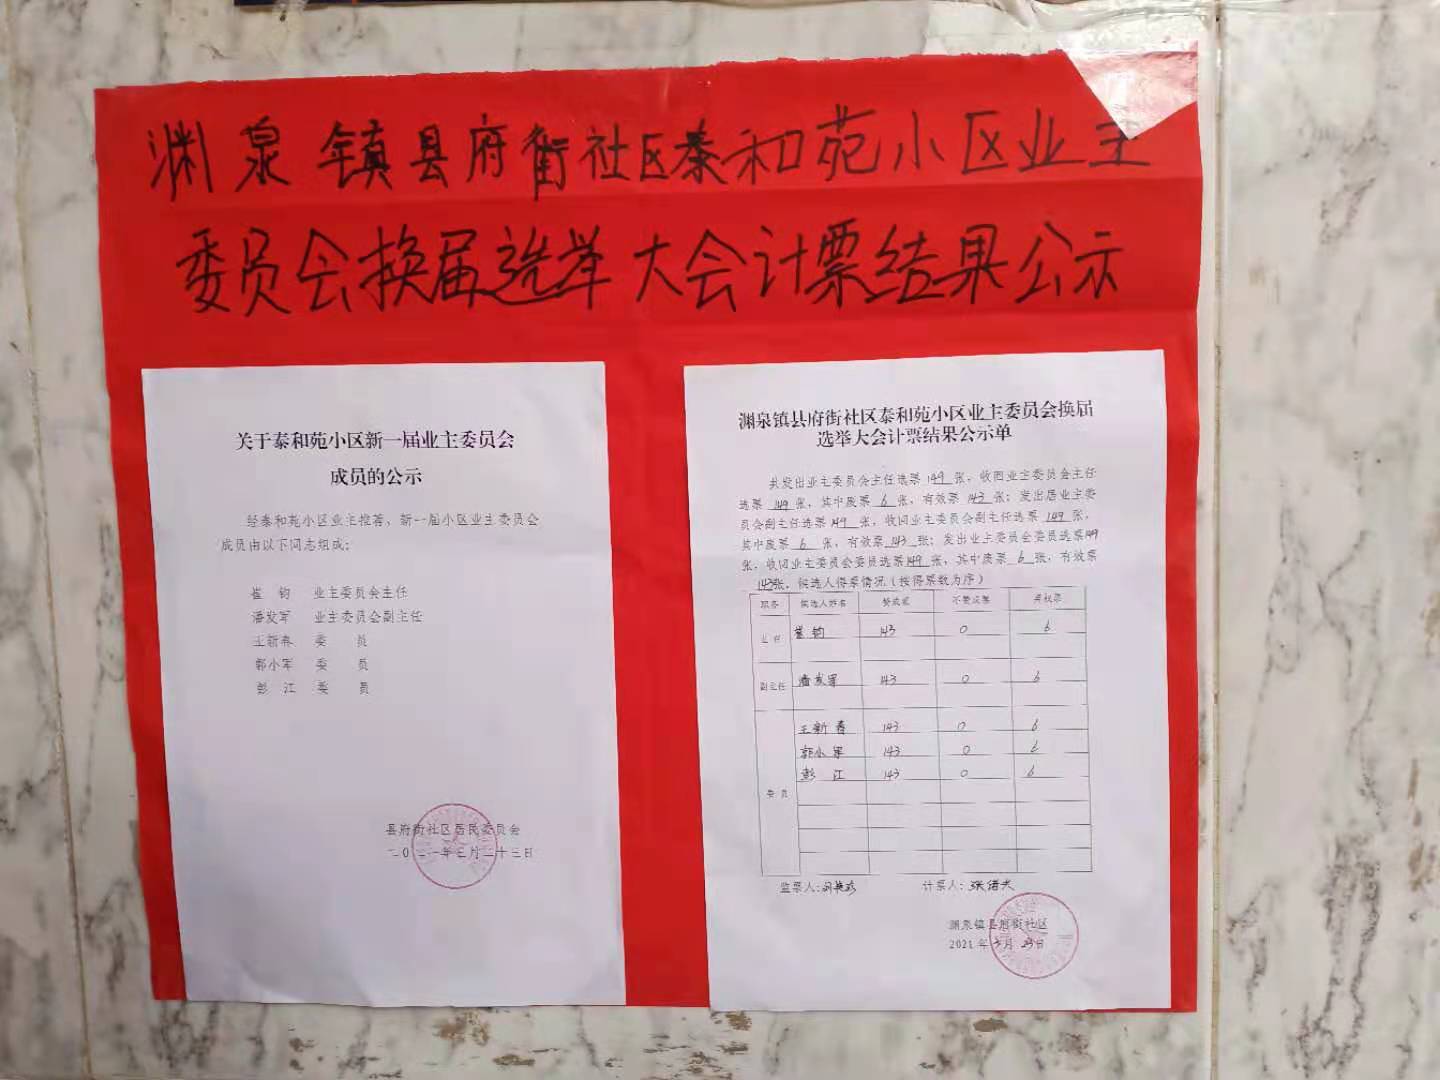 渊泉镇县府街社区泰和苑小区业主
委员会换届选举大会计票结果公示
关于泰和苑小区新一届业主委员会
成员的公示
经泰和苑小区业主推荐，新一届小区业主委员会
成员由以下同志组成：
崔 钧 业主委员会主任
潘发军 业主委员会副主任
王新春 委 员
郭小军 委 员
彭 江 委 员
县府街社区居民委员会
二〇二一年三月二十三日
渊泉镇县府街社区泰和苑小区业主委员会换届
选举大会计票结果公示单
共发出业主委员会主任选票 149 张，收回业主委员会主任
选票 149 张，其中废票 6 张，有效票 143 张；发出居业主委
员会副主任选票 149 张，收回业主委员会副主任选票 149 张，
其中废票 6 张，有效票 143 张；发出业主委员会委员选票 149
张，收回业主委员会委员选票 149 张，其中废票 6 张，有效票
143 张。候选人得票情况（按得票数为序）
职务 候选人姓名 赞成票 不赞成票 弃权票
主 任 崔 钧 143 0 6
副主任 潘发军 143 0 6
王新春 143 0 6
郭小军 143 0 6
彭 江 143 0 6
委 员
监票人： 计票人：
渊泉镇县府街社区
2021 年 3 月 23 日